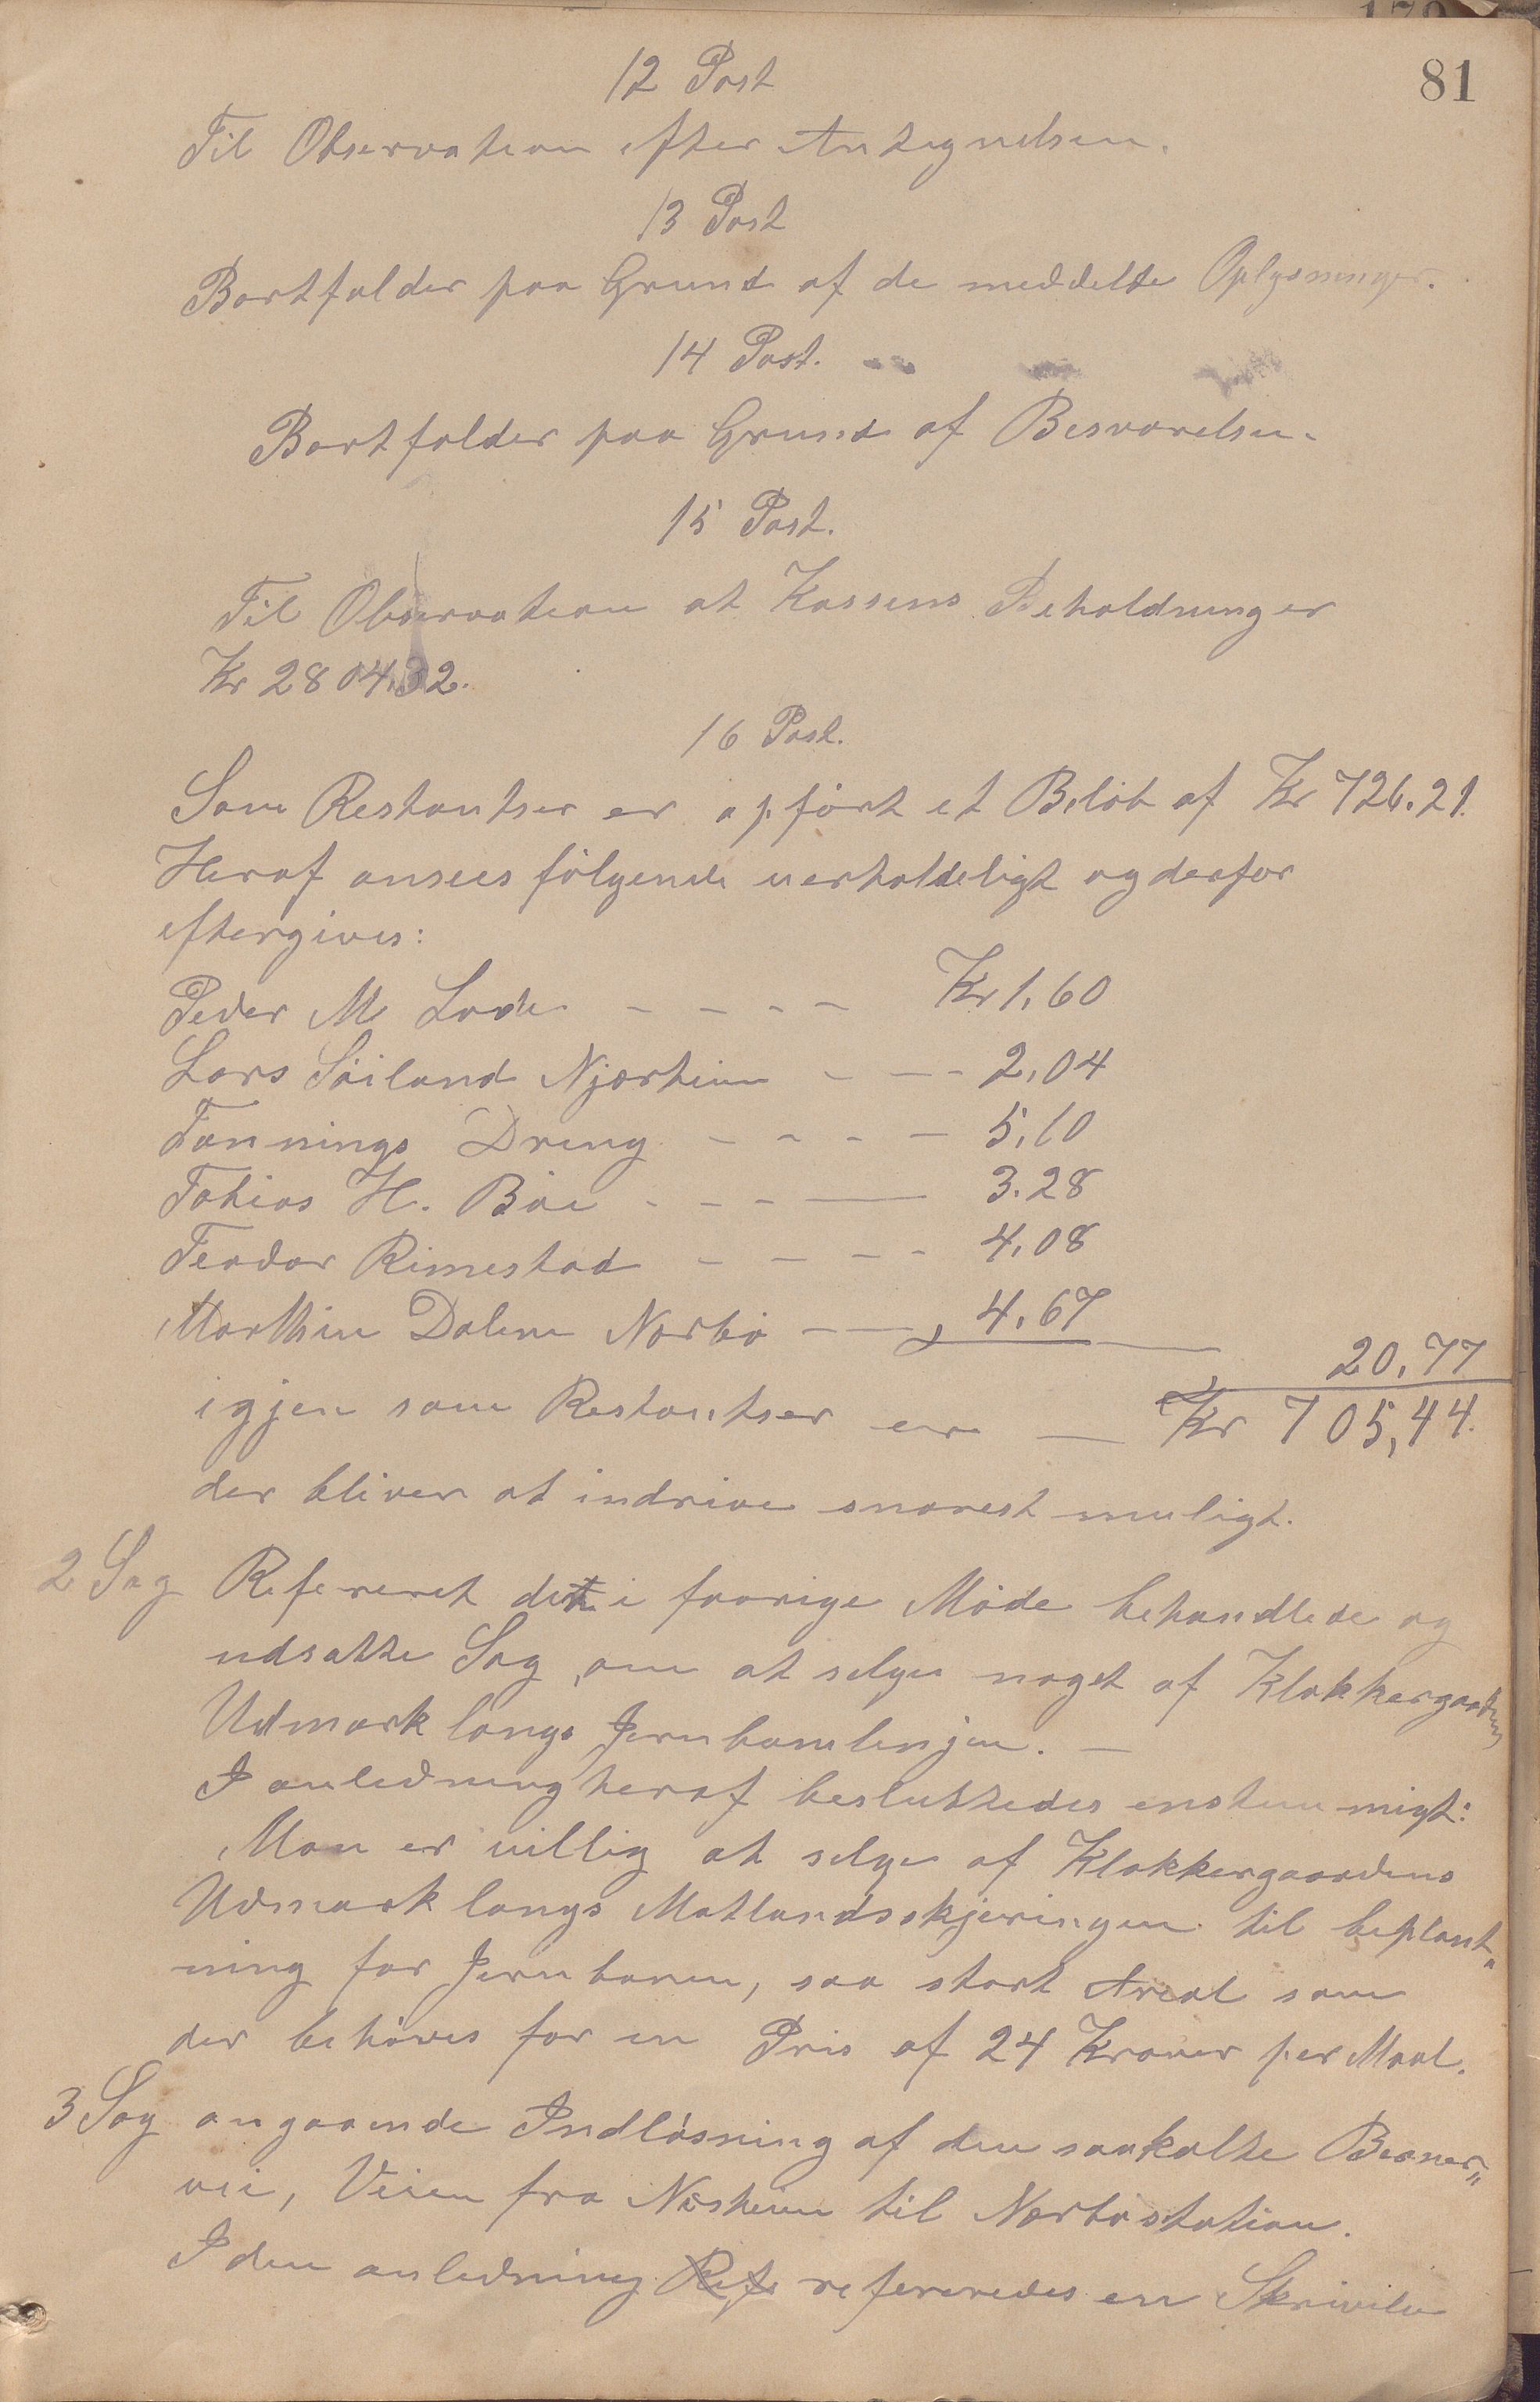 81
12 Post
Til Observation efter Antegnelsen.
13 Post
Bortfalder paa Grund af de meddelte Oplysninger.
14 Post.
Bortfalder paa Grund af Besvarelsen.
15 Post.
Til Observation at Kassens Beholdning er
Kr 2804,32.
16 Post.
Som Restantser er opført et Beløb af Kr 726.21.
Heraf ansees følgende uerholdeligt og derfor
eftergives:
Peder M Lode - - - - Kr 1,60
Lars Söiland Njærheim - - - 2,04
Tønnings Dreng - - - - 5,10
Tobias H. Böe - - - - 3.28
Teodor Rimestad - - - - 4,08
Marthin Dalene Nærbö - - 4,67
20,77
igjen som Restantser er — Kr 705,44.
der bliver at indrive snarest muligt.
2 Sag Refereret det i forrige Möde behandlede og
udsatte Sag, om at selge noget af Klokkergaardens
Udmark langs Jernbanelinjen. —
I anledning heraf besluttedes enstemmigt:
Man er villig at selge af Klokkergaardens
Udmark langs Motlandsskjæringen til beplant-
ning for Jernbanen, saa stort Areal som
der behöves for en Pris af 24 Kroner per Maal.
3 Sag angaaende Indlösning af den saakalte
vei, Veien fra Næsheim til Nærbö station.
I den anledning Refe refereredes en Skrivelse